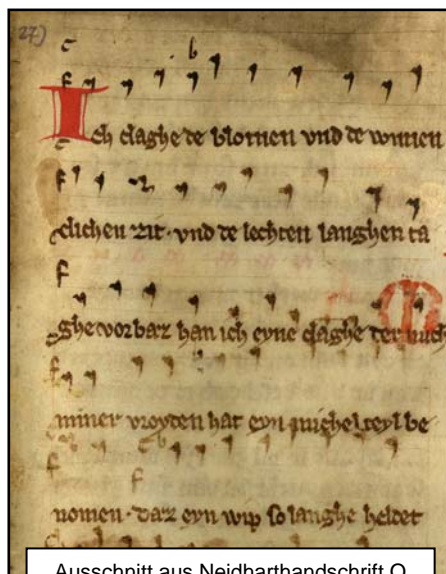 27)
Ich claghe de blomen vnd de wunnen
clichen zit. vnd de lechten langhen ta
ghe vorbaz han ich eyne claghe der mich
miner vroyden hat eyn michel teyl be
nomen. daz eyn wip so langhe heldet
Ausschnitt aus Neidharthandschrift O